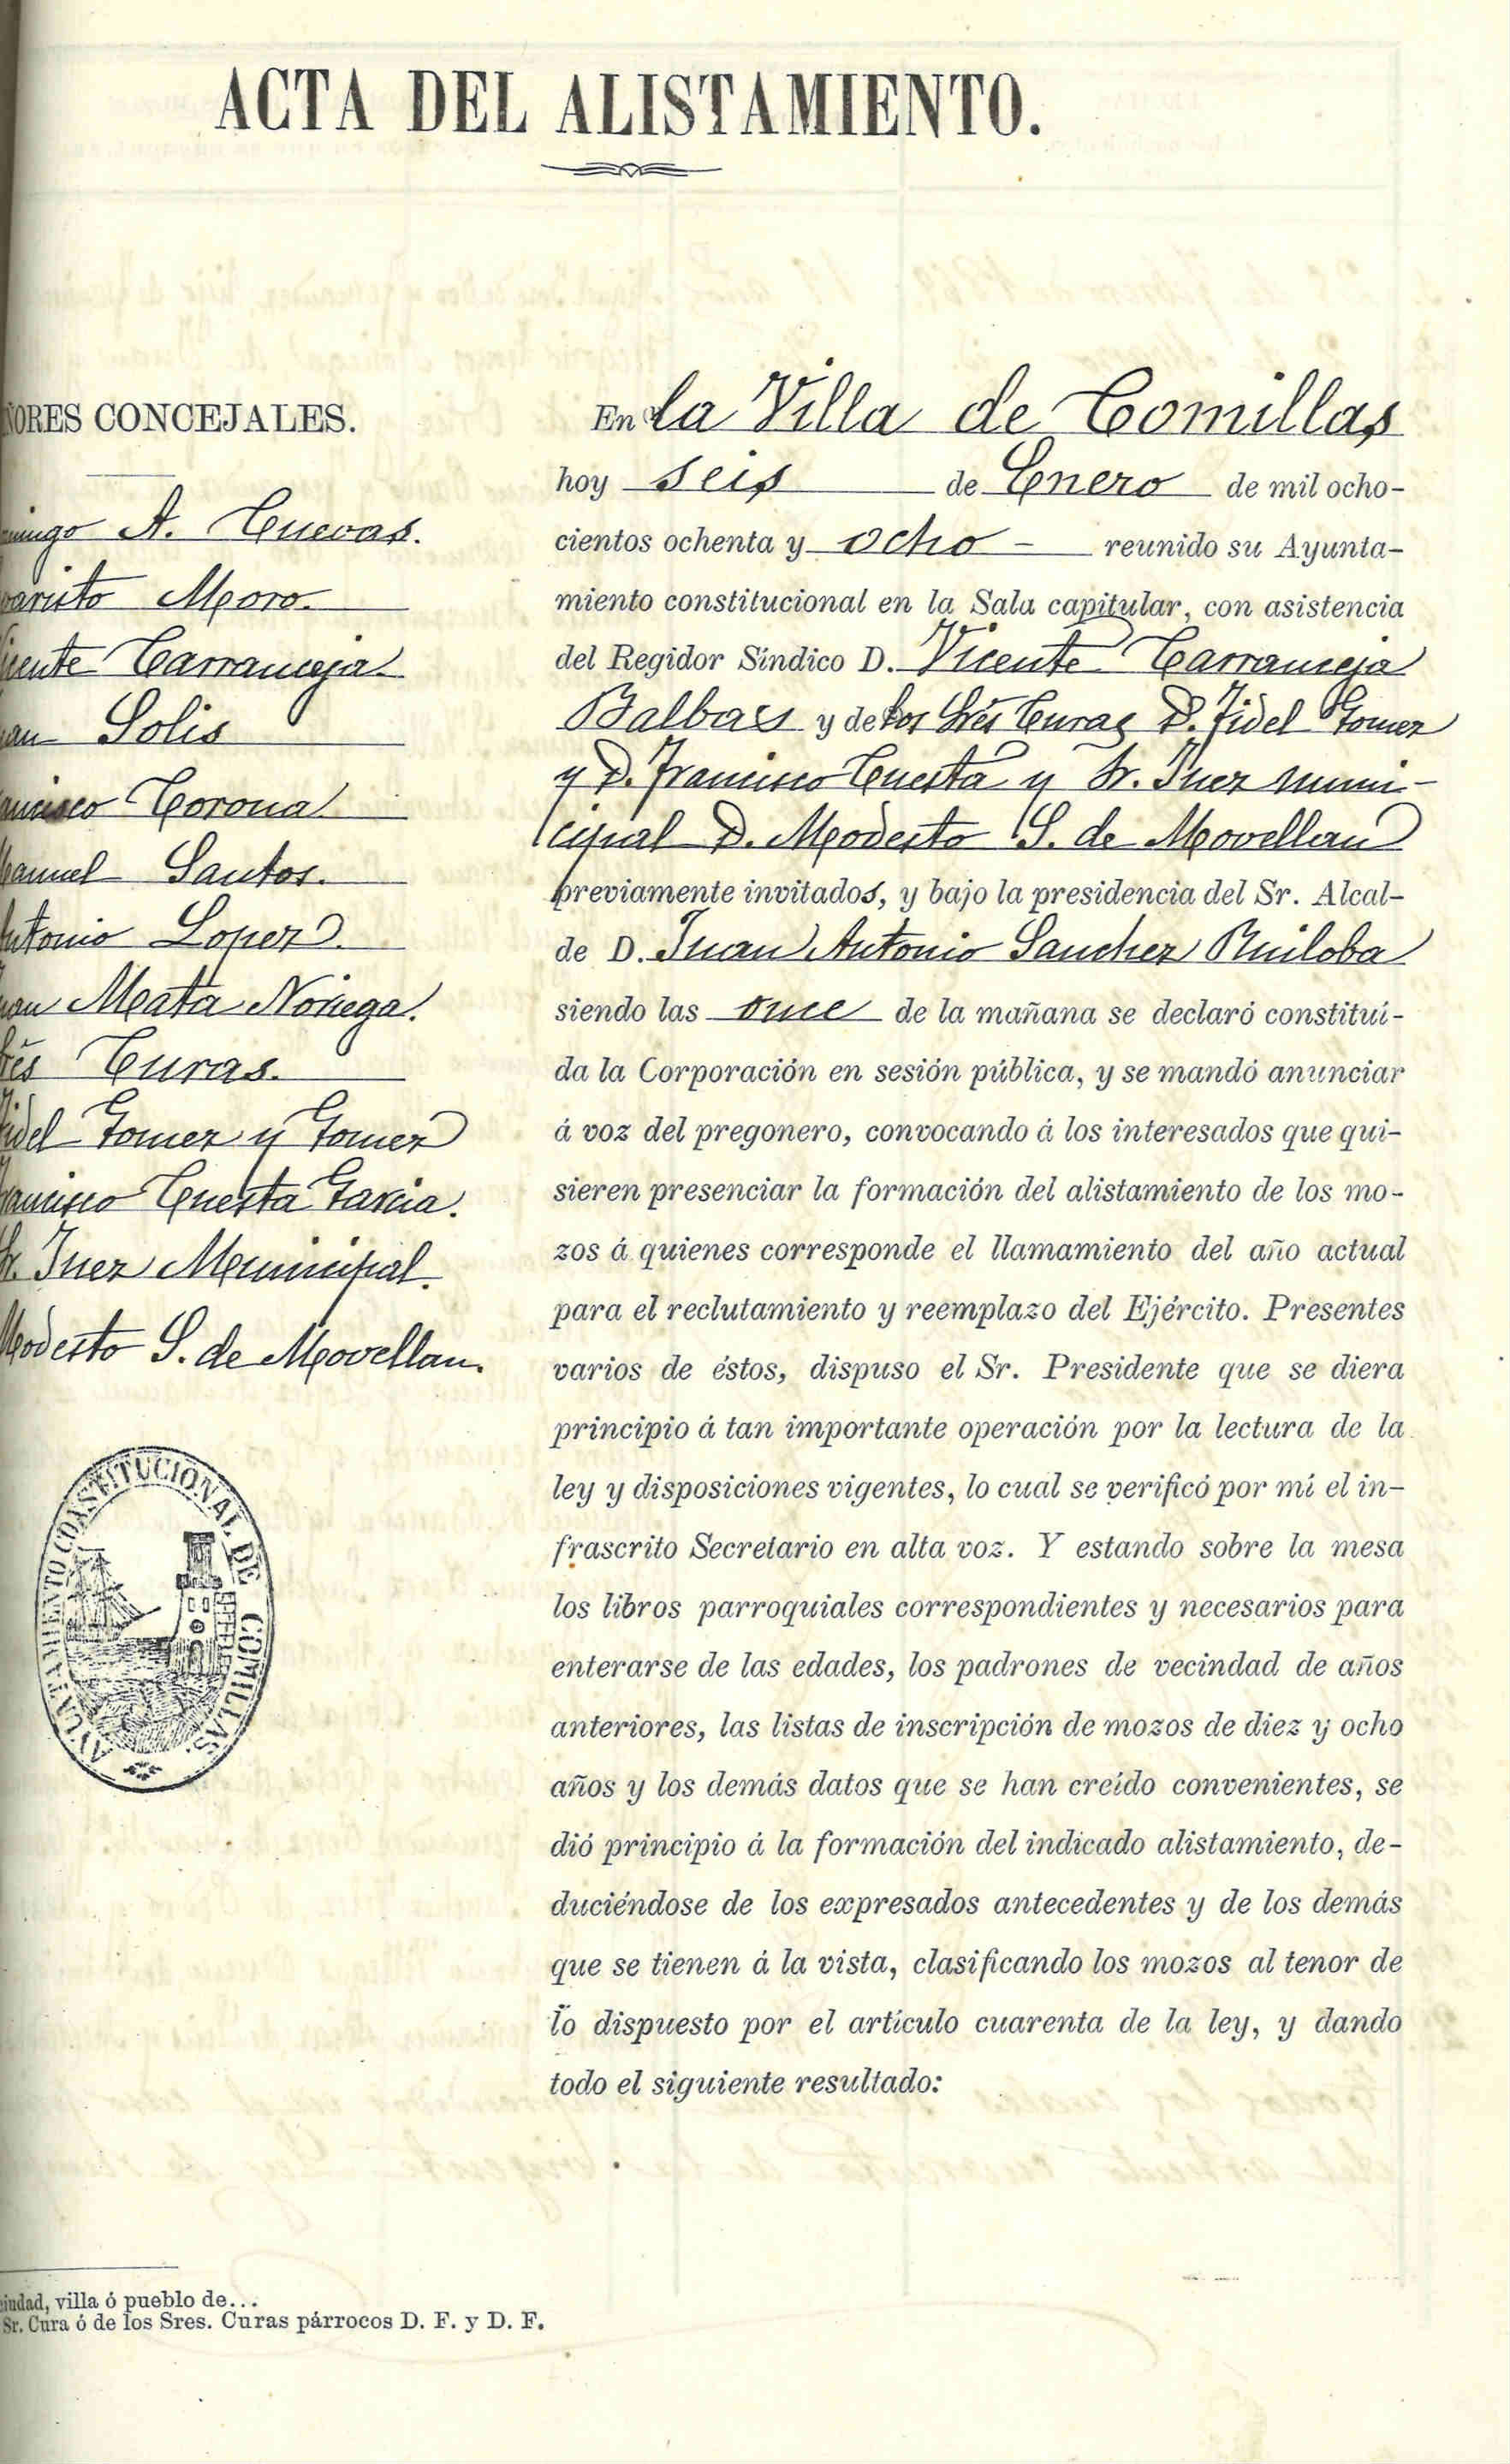 ACTA DEL ALISTAMIENTO.
ÑORES CONCEJALES.
mingo A. Cuevas.
varisto Moro.
icente Carranceja
uan Solis
ancisco Corona
Manuel Santos.
Antonio Lopez
uan Mata Noriega.
Srés Curas.
Fidel Gomez y Gomez
Francisco Cuesta Garcia.
Sr. Juez Municipal.
Modesto S. de Movellan.
AYUNTAMIENTO CONSTITUCIONAL DE COMILLAS
En la Villa de Comillas
hoy seis de Enero de mil ocho-
cientos ochenta y ocho - reunido su Ayunta-
miento constitucional en la Sala capitular, con asistencia
del Regidor Síndico D. Vicente Carranceja
Balbas y de los Srés Curas D. Fidel Gomez
y D. Francisco Cuesta y Sr. Juez muni-
cipal D. Modesto S. de Movellan
previamente invitados, y bajo la presidencia del Sr. Alcal-
de D. Juan Antonio Sanchez Ruiloba
siendo las once de la mañana se declaró constituí-
da la Corporación en sesión pública, y se mandó anunciar
á voz del pregonero, convocando á los interesados que qui-
sieren presenciar la formación del alistamiento de los mo-
zos á quienes corresponde el llamamiento del año actual
para el reclutamiento y reemplazo del Ejército. Presentes
varios de éstos, dispuso el Sr. Presidente que se diera
principio á tan importante operación por la lectura de la
ley y disposiciones vigentes, lo cual se verificó por mí el in-
frascrito Secretario en alta voz. Y estando sobre la mesa
los libros parroquiales correspondientes y necesarios para
enterarse de las edades, los padrones de vecindad de años
anteriores, las listas de inscripción de mozos de diez y ocho
años y los demás datos que se han creído convenientes, se
dió principio á la formación del indicado alistamiento, de-
duciéndose de los expresados antecedentes y de los demás
que se tienen á la vista, clasificando los mozos al tenor de
lo dispuesto por el artículo cuarenta de la ley, y dando
todo el siguiente resultado:
ciudad, villa ó pueblo de...
Sr. Cura ó de los Sres. Curas párrocos D. F. y D. F.